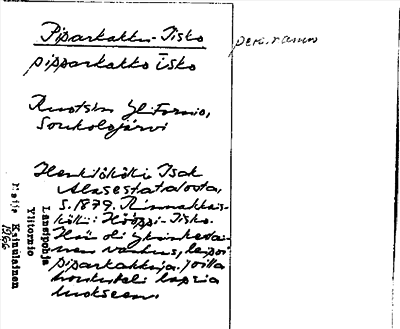 Piparkakku-Iisko
pipparkakko īsko
peri. ranno
Ruotsin Yli-Tornio,
Soukolojärvi
Henkilököki Isak
Alasestatalosta,
s. 1879. Rinnakkais-
köki: Hööppi-Iisko.
Hän oli yksinketai-
nen vanhus, leipoi
piparkakkuja, joilla
houkutteli lapsia
luokseen.
Länsipohja
Ylitornio
Maija Keinulainen
1966